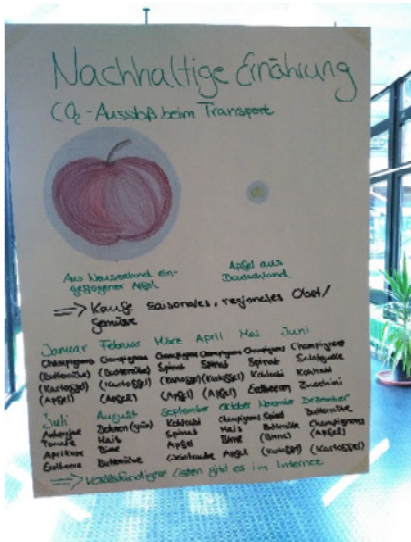 Nachhaltige Ernährung
CO₂-Ausstoß beim Transport
Aus Neuseeland ein-
geflogener Apfel
Apfel aus
Deutschland
=> Kaufe saisonales, regionales Obst/
Gemüse
Januar Februar März April Mai Juni
Champignons Champignons Champignons Champignons Champignons Champignons
(Butternüsse) (Butternüsse) Spinat Spinat Spinat Salatgurke
(Kartoffel) (Kartoffel) (Kartoffel) (Kartoffel) Kohlrabi Kohlrabi
(Apfel) (Apfel) (Apfel) (Apfel) Erdbeeren Zucchini
Juli August September Oktober November Dezember
Aubergine Bohnen (grün) Kohlrabi Champignons Spinat Butternüsse
Tomate Mais Spinat Mais Butternüsse Champignons
Aprikose Birne Apfel Birne (Birne) (Apfel)
Erdbeere Butternüsse Weintraube Apfel (Kartoffel) (Kartoffel)
=> Vollständigere Listen gibt es im Internet